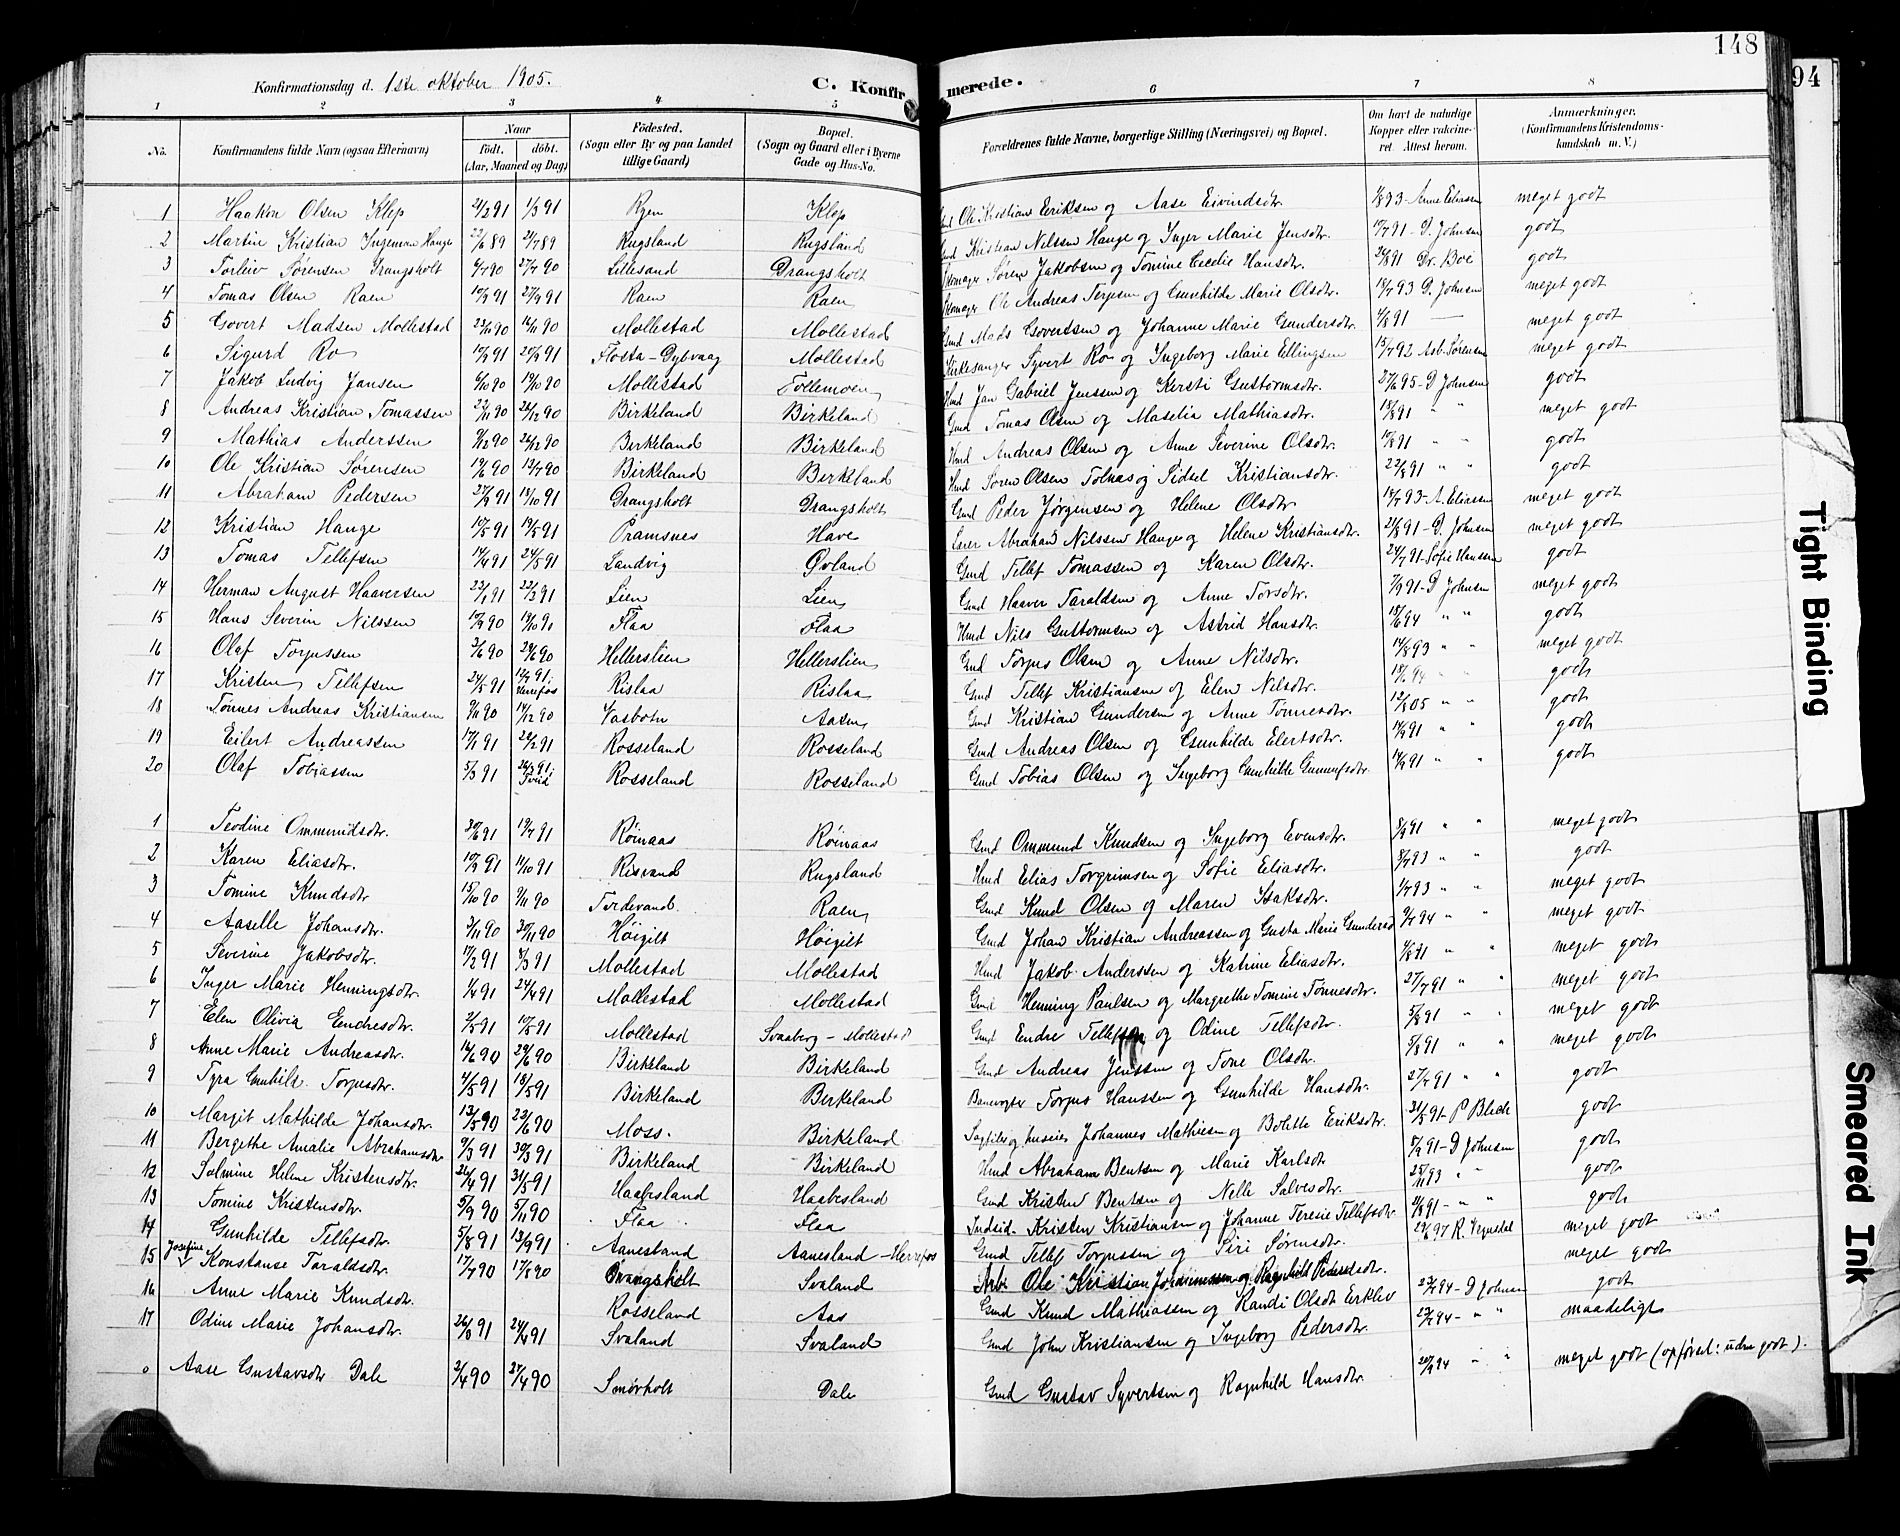 148
94
Konfirmationsdag d. 1ste oktober 1905.
C. Konfirmerede.
1 2 3 4 5 6 7 8
No. Konfirmandens fulde Navn (ogsaa Efternavn) Naar födt, döbt. (Aar, Maaned og Dag) Födested. (Sogn eller By og paa Landet tillige Gaard) Bopæl. (Sogn og Gaard eller i Byerne Gade og Hus-No. Forældrenes fulde Navne, borgerlige Stilling (Næringsvei) og Bopæl. Om havt de naturlige Kopper eller vakcineret. Attest herom. Anmærkninger. (Konfirmandens Kristendomskundskab m. V.)
1 Haakon Olsen Klep 21/2 91 1/3 91 Ryen Klep Ole Kristian Eriksen og Aase Eivindsdtr. 1/8 93 - Anne Eliassen meget godt
2 Martin Kristian Ingeman Hauge 22/6 89 21/7 89 Rugsland Rugsland Kristian Nilssen Hauge og Inger Marie Jensdtr. 17/7 91 - D. Johnsen godt
3 Torleiv Sørensen Drangsholt 6/7 90 27/7 90 Lillesand Drangsholt Skomager Søren Jakobsen og Tomine Cecilie Hansdtr. 26/8 91 Dr. Boe godt
4 Tomas Olsen Raen 10/9 91 27/9 91 Raen Raen Skomager Ole Andreas Terjesen og Gunhilde Marie Olsdtr. 18/7 93 D. Johnsen meget godt
5 Govert Madsen Mollestad 23/10 90 16/11 90 Mollestad Mollestad Gmd Mads Govertsen og Johanne Marie Gundersdtr. 4/8 91 — meget godt
6 Sigurd Ro 10/2 91 20/3 91 Flosta - Dybvaag Mollestad Kirkesanger Syvert Ro og Ingeborg Marie Ellingsen 15/7 92 Asb. Sørensen meget godt
7 Jakob Ludvig Jansen 6/10 90 19/10 90 Mollestad Tollemoen Hmd Jan Gabriel Jenssen og Kersti Guttormsdtr. 27/6 95 - D Johnsen godt
8 Andreas Kristian Tomassen 22/11 90 26/12 90 Birkeland Birkeland Gmd Tomas Olsen og Maselia Mathiasdtr. 18/8 91 " " meget godt
9 Mathias Anderssen 9/12 90 26/12 90 Birkeland Birkeland Hmd Andreas Olsen og Anne Severine Olsdtr. 10/8 91 " " godt
10 Ole Kristian Sørensen 19/6 90 13/7 90 Birkeland Birkeland Hmd Søren Olsen Tolnas og Sidsel Kristiansdtr. 22/8 91 " " godt
11 Abraham Pedersen 27/9 91 18/10 91 Drangsholt Drangsholt Gmd Peder Jørgensen og Helene Olsdtr. 14/7 93 - A. Eliassen meget godt
12 Kristian Hauge 10/5 91 19/5 91 Pramsnes Have Abraham Nilssen Hauge og Helene Kristiansdtr. 21/8 91 - D. Johnsen meget godt
13 Tomas Tellefsen 14/4 91 24/5 91 Landvig Øvland Gmd Tellef Tomassen og Karen Olsdtr. 24/7 91 - Sofie Hanssen godt
14 Herman August Haaversen 23/1 91 22/3 91 Lien Lien Gmd Haaver Taraldsen og Anne Torsdtr. 7/9 91 - D Johnsen meget godt
15 Hans Severin Nilssen 10/9 90 19/10 90 Flaa Flaa Hmd Nils Guttormsen og Astrid Hansdtr. 18/6 94 " " godt
16 Olaf Torjussen 3/6 90 29/6 90 Hellerslien Hellerslien Gmd Torjus Olsen og Anne Nilsdtr. 14/8 93 " " meget godt
17 Kristen Tellefsen 24/5 91 12/7 91. Herefos Rislaa Rislaa Gmd Tellef Kristiansen og Elen Nilsdtr. " " godt
18 Tønnes Andreas Kristiansen 9/11 90 14/12 90 Vasbotn Aasen Gmd Kristian Gundersen og Anne Tønnesdtr. 12/8 05 " " godt
19 Eilert Andreassen 17/1 91 22/2 91 Rosseland Rosseland Gmd Andreas Olsen og Gunhilde Elertsdtr. 14/9 91 " " godt
20 Olaf Tobiassen 5/3 91 26/3 91. Rosseland Rosseland Gmd Tobias Olsen og Ingeborg Gunhilde Gunnufsdtr. 14/9 91 " " godt
1 Teodine Ommundsdtr. 30/6 91 19/7 91 Røinaas Røinaas Gmd Ommund Knudsen og Ingeborg Evensdtr. 8/9 91 " " meget godt
2 Karen Eliasdtr. 10/9 91 11/10 91 Risvand Rugsland Hmd Elias Torgrimsen og Sofie Eliasdtr. 3/7 93 " " godt
3 Tomine Knudsdtr 15/10 90 9/11 90 Terdevand Raen Gmd Knud Olsen og Maren Isaksdtr. 1/7 93 " " meget godt
4 Aaselle Johansdtr. 3/11 90 30/11 90 Høigilt Høigilt Gmd Johan Kristian Andreassen og Gusta Marie Gundersd 9/7 94 " " meget godt
5 Severine Jakobsdtr. 17/2 91 8/3 91 Mollestad Mollestad Hmd Jakob Anderssen og Katrine Eliasdtr. 4/8 91 " " meget godt
6 Inger Marie Henningsdtr. 1/4 91 24/4 91 Mollestad Mollestad Gmd Henning Paulsen og Margrethe Tomine Tønnesdtr. 27/7 91 " " meget godt
7 Elen Olivia Endresdtr. 2/5 91 10/5 91 Mollestad Svaaberg - Mollestad Gmd Endre Tellefsen og Odine Tellefsdtr. 5/8 91 " " meget godt
8 Anne Marie Andreasdtr. 14/6 90 29/6 90 Birkeland Birkeland Gmd Andreas Jenssen og Tone Olsdtr. 5/8 91 " " meget godt
9 Tyra Gunhild Torjusdtr. 4/5 91 18/5 91 Birkeland Birkeland Banevogter Torjus Hanssen og Gunhilde Hansdtr. 27/7 91 " " godt
10 Margit Mathilde Johansdtr. 13/5 90 22/6 90 Moss. Birkeland Johannes Mathiesen og Bolette Eriksdtr. 31/5 91 - P Blich godt
11 Bergethe Amalie Abrahamsdtr 9/3 91 30/3 91 Birkeland Birkeland Hmd Abraham Bentsen og Marie Karlsdtr 5/9 91 - D Johnsen godt
12 Salmine Helene Kristensdtr. 26/4 91 31/5 91 Haabesland Haabesland Gmd Kristen Bentsen og Nelle Salvesdtr. 25/11 93 " godt
13 Tomine Kristensdtr. 5/9 90 5/11 90 Flaa Flaa Indsid. Kristen Kristiansen og Johanne Teresie Tellefsdtr 4/8 91 - " " godt
14 Gunhilde Tellefsdtr. 5/8 91 13/9 91 Aanesland Aanesland - Herrefos Gmd Tellef Torjussen og Siri Sørensdtr. 22/6 97 R. Vegusdal meget godt
15 Josefine Konstanse Taraldsdtr. 17/7 90 17/8 90 Drangsholt Svaland Arb. Ole Kristian Johannessen og Ragnhild Pedersdtr. meget godt
16 Anne Marie Knudsdtr. Rosseland Aas Gmd Knud Mathiassen og Randi Olsdtr Erklev 23/7 94 - D Johnsen godt
17 Odine Marie Johansdtr. 26/3 91 24/4 91 Svaland Svaland Gmd John Kristiansen og Ingeborg Pedersdtr. 27/7 94 - " " maadeligt
0 Aase Gustavsdtr Dale 2/4 90 27/4 90 Smørholt Dale Gmd Gustav Syvertsen og Ragnhild Hansdtr. 20/9 94 " " meget godt (opførsel: udm. godt).
Tight Binding
Smeared Ink